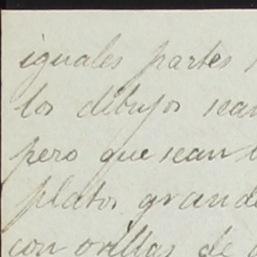 iguales partes
los dibujos sean
pero que sean
platos grande
con orillas de